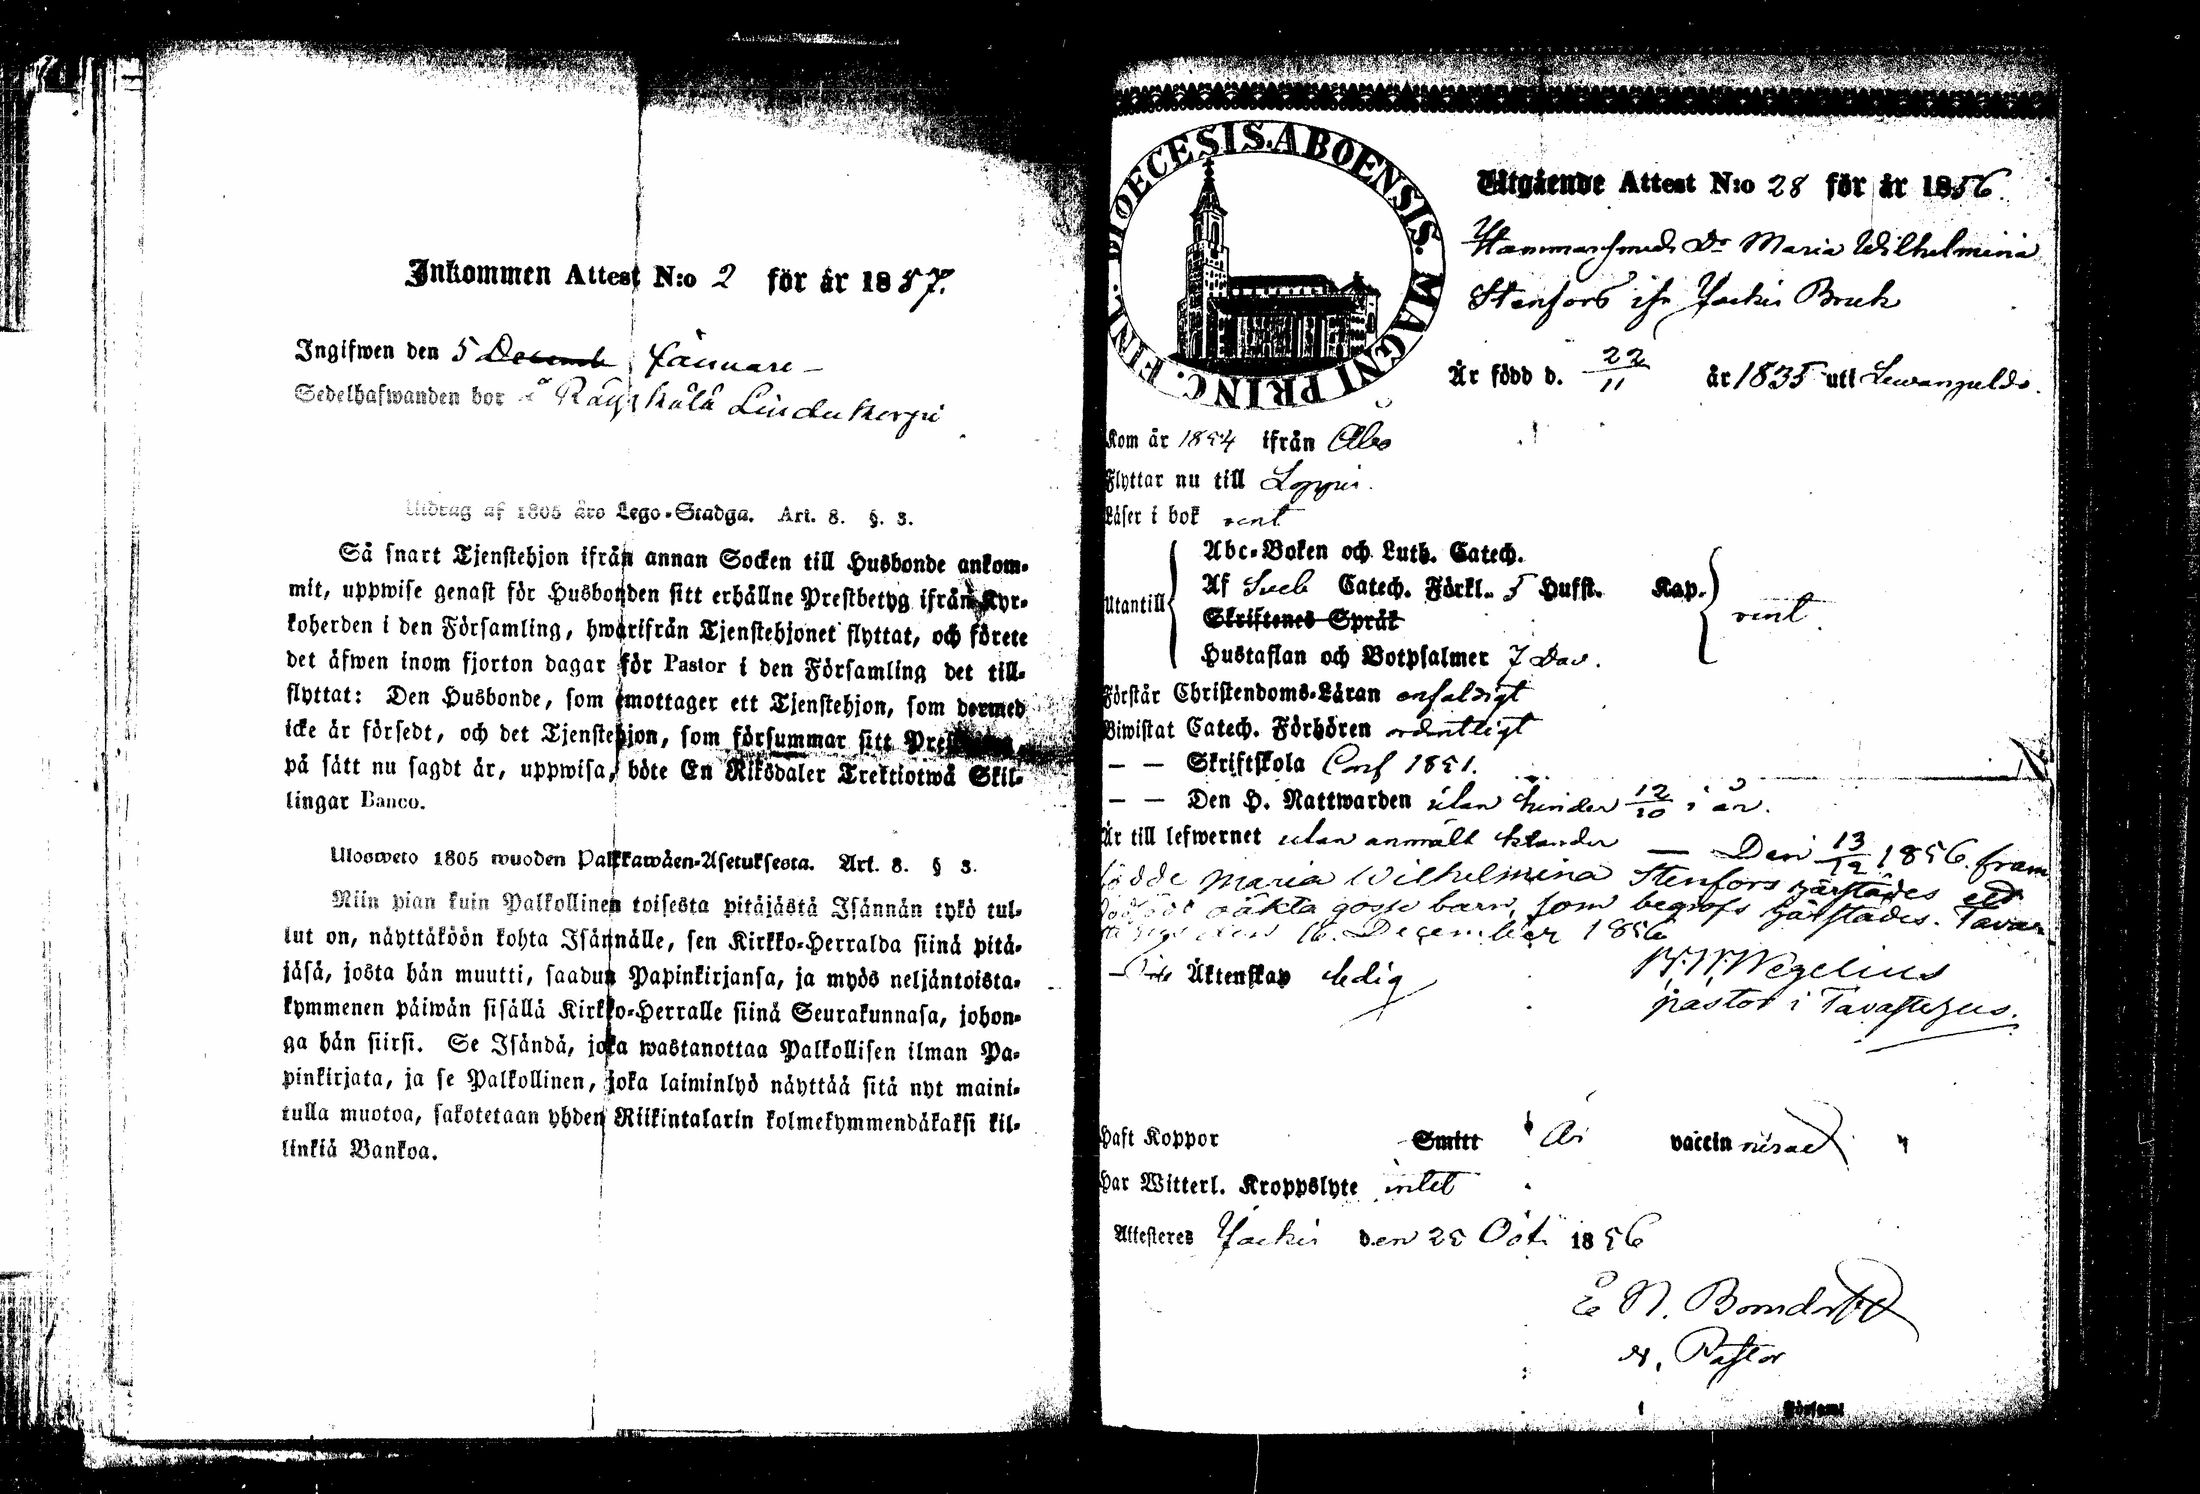 Inkommen Attest N:o 2 för år 1857.
Ingifwen den 5 Decemb Januari
Sedelhafwanden bor å Räyskälä Lindukorpi
Utdrag af 1805 års Lego-Stadga. Art. 8. §. 3.
Så snart Tjenstehjon ifrån annan Socken till Husbonde ankom-
mit, uppwise genast för Husbonden sitt erhållne Prestbetyg ifrån Kyr-
koherden i den Församling, hwarifrån Tjenstehjonet flyttat, och förete
det äfwen inom fjorton dagar för Pastor i den Församling det till-
flyttat: Den Husbonde, som emottager ett Tjenstehjon, som dermed
icke är försedt, och det Tjenstehjon, som försummar sitt
på sätt nu sagdt är, uppwisa, böte En Riksdaler Trettiotwå Skil-
lingar Banco.
Ulosweto 1805 wuoden Palkkawäen-Asetuksesta. Art. 8. § 3.
Niin pian kuin Palkollinen toisesta pitäjästä Isännän tykö tul-
lut on, näyttäköön kohta Isännälle, sen Kirkko-Herralda siinä pitä-
jäsä, josta hän muutti, saadun Papinkirjansa, ja myös neljäntoista-
kymmenen päiwän sisällä Kirkko-Herralle siinä Seurakunnasa, johon-
ga hän siirsi. Se Isändä, joka wastanottaa Palkollisen ilman Pa-
pinkirjata, ja se Palkollinen, joka laiminlyö näyttää sitä nyt maini-
tulla muotoa, sakotetaan yhden Riikintalarin kolmekymmendäkaksi kil-
linkiä Bankoa.
DIOECESIS. ABOENSIS. MAGNI PRINC. FINL.
Utgående Attest N:o 28 för år 1856.
Hammarsmeds Dr Maria Wilhelmina
Stenfors ifr Jockis Bruk
Är född d. 22/11 år 1835 uti
Kom år 1854 ifrån Åbo
Flyttar nu till Loppis.
Läser i bok rent
Abc-Boken och Luth. Catech.
Utantill Af Sveb Catech. Förkl. 5 Hufst. Kap. rent.
Skriftenes Språk
Hustaflan och Botpsalmer 7 Dav.
Förstår Christendoms-Läran enfaldigt
Biwistat Catech. Förhören ordentligt
— — Skriftskola Conf 1851.
— — Den H. Nattwarden utan hinder 12/10 i år.
Är till lefwernet utan anmält klander — Den 13/12 1856. fram-
födde Maria Wilhelmina Stenfors härstädes ett
dödfödt oäkta gosse barn, som begrofs härstädes. Tavas-
den 16. December 1856
Äktenskap ledig Wegelius
pastor i Tavastehus.
Haft Koppor Smitt Är vaccin nerad
Har Witterl. Kroppslyte intet
Attesteres Jockis den 25 Oct. 1856
E N. Bonsdorff
Pastor
Församl